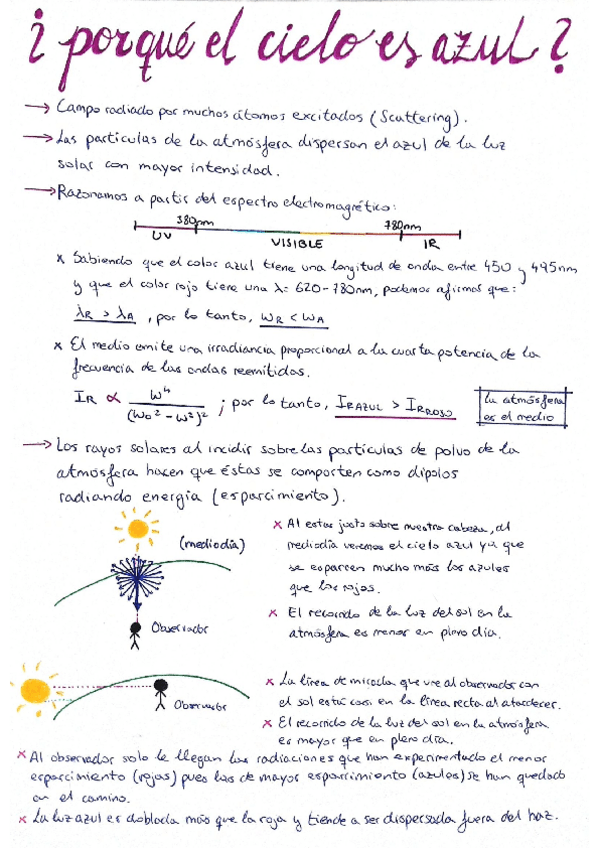 ¿porqué el cielo es azul?
→ Campo radiado por muchos átomos excitados (Scattering).
→ Las partículas de la atmósfera dispersan el azul de la luz
solar con mayor intensidad.
→ Razonamos a partir del espectro electromagnético:
380nm 780nm
UV VISIBLE IR
x Sabiendo que el color azul tiene una longitud de onda entre 450 y 495nm
y que el color rojo tiene una λ= 620-780nm, podemos afirmar que:
λR > λA , por lo tanto, ωR < ωA
x El medio emite una irradiancia proporcional a la cuarta potencia de la
frecuencia de las ondas reemitidas.
IR ∝ ω⁴ / (ω0² - ω²)² ; por lo tanto, IRAZUL > IRROJO
la atmósfera
es el medio
→ Los rayos solares al incidir sobre las partículas de polvo de la
atmósfera hacen que éstas se comporten como dipolos
radiando energía (esparcimiento).
(mediodía)
Observador
x Al estar justo sobre nuestra cabeza, al
mediodía veremos el cielo azul ya que
se esparcen mucho más los azules
que los rojos.
x El recorrido de la luz del sol en la
atmósfera es menor en pleno día.
Observador
x La línea de mirada que une al observador con
el sol está casi en la línea recta al atardecer.
x El recorrido de la luz del sol en la atmósfera
es mayor que en pleno día.
x Al observador solo le llegan las radiaciones que han experimentado el menor
esparcimiento (rojas) pues las de mayor esparcimiento (azules) se han quedado
en el camino.
x La luz azul es doblada más que la roja y tiende a ser dispersada fuera del haz.